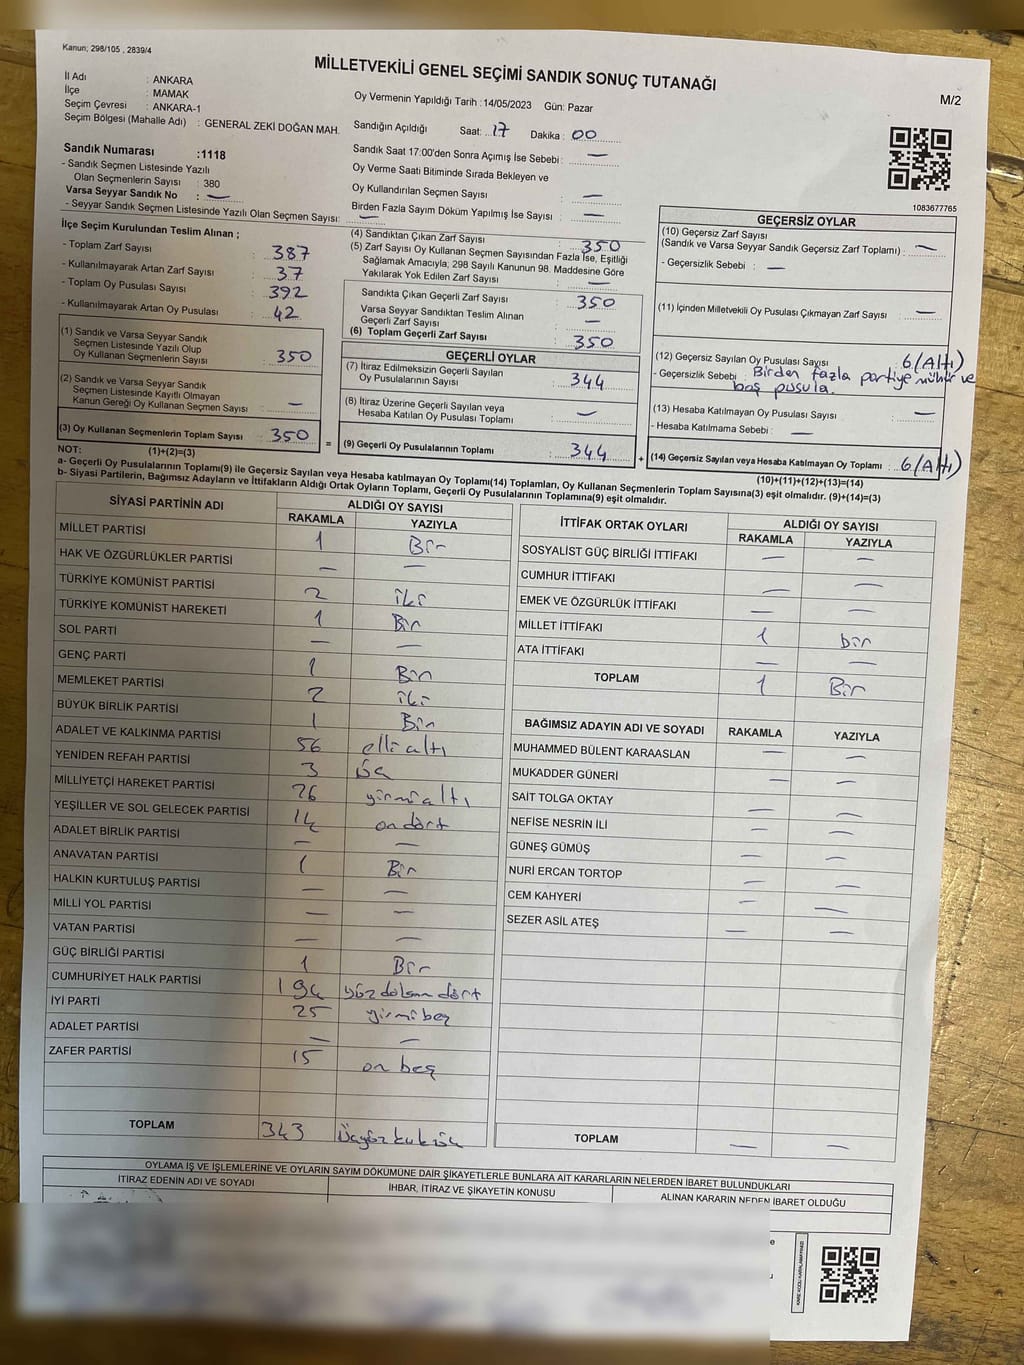 Kanun; 298/105 , 2839/4
MİLLETVEKİLİ GENEL SEÇİMİ SANDIK SONUÇ TUTANAĞI
M/2
İl Adı : ANKARA
İlçe : MAMAK
Seçim Çevresi : ANKARA-1
Seçim Bölgesi (Mahalle Adı) : GENERAL ZEKİ DOĞAN MAH.
Oy Vermenin Yapıldığı Tarih :14/05/2023 Gün: Pazar
Sandığın Açıldığı Saat: 17 Dakika : 00
Sandık Saat 17:00'den Sonra Açımış İse Sebebi : —
Oy Verme Saati Bitiminde Sırada Bekleyen ve
Oy Kullandırılan Seçmen Sayısı : —
Birden Fazla Sayım Döküm Yapılmış İse Sayısı : —
Sandık Numarası :1118
- Sandık Seçmen Listesinde Yazılı
Olan Seçmenlerin Sayısı : 380
Varsa Seyyar Sandık No : —
- Seyyar Sandık Seçmen Listesinde Yazılı Olan Seçmen Sayısı: —
1083677765
İlçe Seçim Kurulundan Teslim Alınan ;
- Toplam Zarf Sayısı : 387
- Kullanılmayarak Artan Zarf Sayısı : 37
- Toplam Oy Pusulası Sayısı : 392
- Kullanılmayarak Artan Oy Pusulası : 42
(1) Sandık ve Varsa Seyyar Sandık
Seçmen Listesinde Yazılı Olup
Oy Kullanan Seçmenlerin Sayısı : 350
(2) Sandık ve Varsa Seyyar Sandık
Seçmen Listesinde Kayıtlı Olmayan
Kanun Gereği Oy Kullanan Seçmen Sayısı : —
(3) Oy Kullanan Seçmenlerin Toplam Sayısı : 350
(1)+(2)=(3)
(4) Sandıktan Çıkan Zarf Sayısı : 350
(5) Zarf Sayısı Oy Kullanan Seçmen Sayısından Fazla İse, Eşitliği
Sağlamak Amacıyla; 298 Sayılı Kanunun 98. Maddesine Göre
Yakılarak Yok Edilen Zarf Sayısı : —
Sandıkta Çıkan Geçerli Zarf Sayısı : 350
Varsa Seyyar Sandıktan Teslim Alınan
Geçerli Zarf Sayısı : —
(6) Toplam Geçerli Zarf Sayısı : 350
GEÇERLİ OYLAR
(7) İtiraz Edilmeksizin Geçerli Sayılan
Oy Pusulalarının Sayısı : 344
(8) İtiraz Üzerine Geçerli Sayılan veya
Hesaba Katılan Oy Pusulası Toplamı : —
= (9) Geçerli Oy Pusulalarının Toplamı : 344
GEÇERSİZ OYLAR
(10) Geçersiz Zarf Sayısı
(Sandık ve Varsa Seyyar Sandık Geçersiz Zarf Toplamı) : —
- Geçersizlik Sebebi : —
(11) İçinden Milletvekili Oy Pusulası Çıkmayan Zarf Sayısı : —
(12) Geçersiz Sayılan Oy Pusulası Sayısı : 6 (Altı)
- Geçersizlik Sebebi : Birden fazla partiye mühür ve
boş pusula.
(13) Hesaba Katılmayan Oy Pusulası Sayısı : —
- Hesaba Katılmama Sebebi : —
+ (14) Geçersiz Sayılan veya Hesaba Katılmayan Oy Toplamı : 6 (Altı)
(10)+(11)+(12)+(13)=(14)
NOT:
a- Geçerli Oy Pusulalarının Toplamı(9) ile Geçersiz Sayılan veya Hesaba katılmayan Oy Toplamı(14) Toplamları, Oy Kullanan Seçmenlerin Toplam Sayısına(3) eşit olmalıdır. (9)+(14)=(3)
b- Siyasi Partilerin, Bağımsız Adayların ve İttifakların Aldığı Ortak Oyların Toplamı, Geçerli Oy Pusulalarının Toplamına(9) eşit olmalıdır.
SİYASİ PARTİNİN ADI ALDIĞI OY SAYISI
RAKAMLA YAZIYLA
MİLLET PARTİSİ 1 Bir
HAK VE ÖZGÜRLÜKLER PARTİSİ — —
TÜRKİYE KOMÜNİST PARTİSİ 2 iki
TÜRKİYE KOMÜNİST HAREKETİ 1 Bir
SOL PARTİ — —
GENÇ PARTİ 1 Bir
MEMLEKET PARTİSİ 2 iki
BÜYÜK BİRLİK PARTİSİ 1 Bir
ADALET VE KALKINMA PARTİSİ 56 elli altı
YENİDEN REFAH PARTİSİ 3 üç
MİLLİYETÇİ HAREKET PARTİSİ 26 yirmi altı
YEŞİLLER VE SOL GELECEK PARTİSİ 14 on dört
ADALET BİRLİK PARTİSİ — —
ANAVATAN PARTİSİ 1 Bir
HALKIN KURTULUŞ PARTİSİ — —
MİLLİ YOL PARTİSİ — —
VATAN PARTİSİ — —
GÜÇ BİRLİĞİ PARTİSİ 1 Bir
CUMHURİYET HALK PARTİSİ 194 yüz doksan dört
İYİ PARTİ 25 yirmi beş
ADALET PARTİSİ — —
ZAFER PARTİSİ 15 on beş
TOPLAM 343 Üçyüz
İTTİFAK ORTAK OYLARI ALDIĞI OY SAYISI
RAKAMLA YAZIYLA
SOSYALİST GÜÇ BİRLİĞİ İTTİFAKI — —
CUMHUR İTTİFAKI — —
EMEK VE ÖZGÜRLÜK İTTİFAKI — —
MİLLET İTTİFAKI 1 bir
ATA İTTİFAKI — —
TOPLAM 1 Bir
BAĞIMSIZ ADAYIN ADI VE SOYADI RAKAMLA YAZIYLA
MUHAMMED BÜLENT KARAASLAN — —
MUKADDER GÜNERİ — —
SAİT TOLGA OKTAY — —
NEFİSE NESRİN İLİ — —
GÜNEŞ GÜMÜŞ — —
NURİ ERCAN TORTOP — —
CEM KAHYERİ — —
SEZER ASİL ATEŞ — —
TOPLAM — —
OYLAMA İŞ VE İŞLEMLERİNE VE OYLARIN SAYIM DÖKÜMÜNE DAİR ŞİKAYETLERLE BUNLARA AİT KARARLARIN NELERDEN İBARET BULUNDUKLARI
İTİRAZ EDENİN ADI VE SOYADI İHBAR, İTİRAZ VE ŞİKAYETİN KONUSU ALINAN KARARIN NEDEN İBARET OLDUĞU